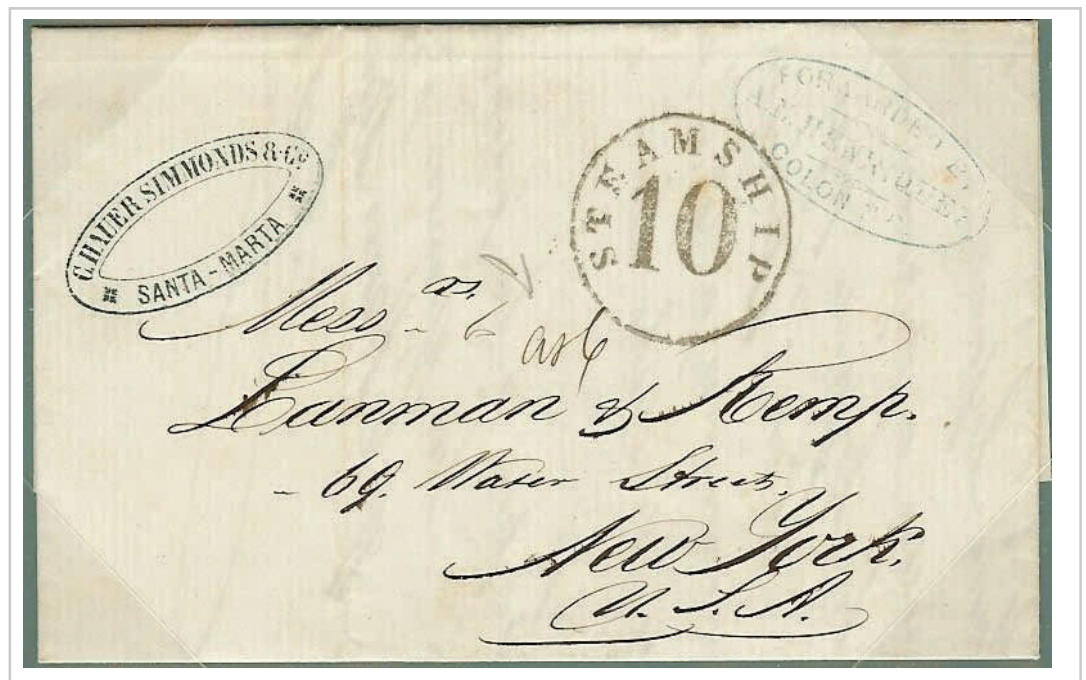 C. HAUER SIMMONDS & Co
SANTA-MARTA
STEAMSHIP
10
FORWARDED BY
COLON
Messrs.
Lanman & Kemp.
- 69. Water Street,
New York.
U. S. A.